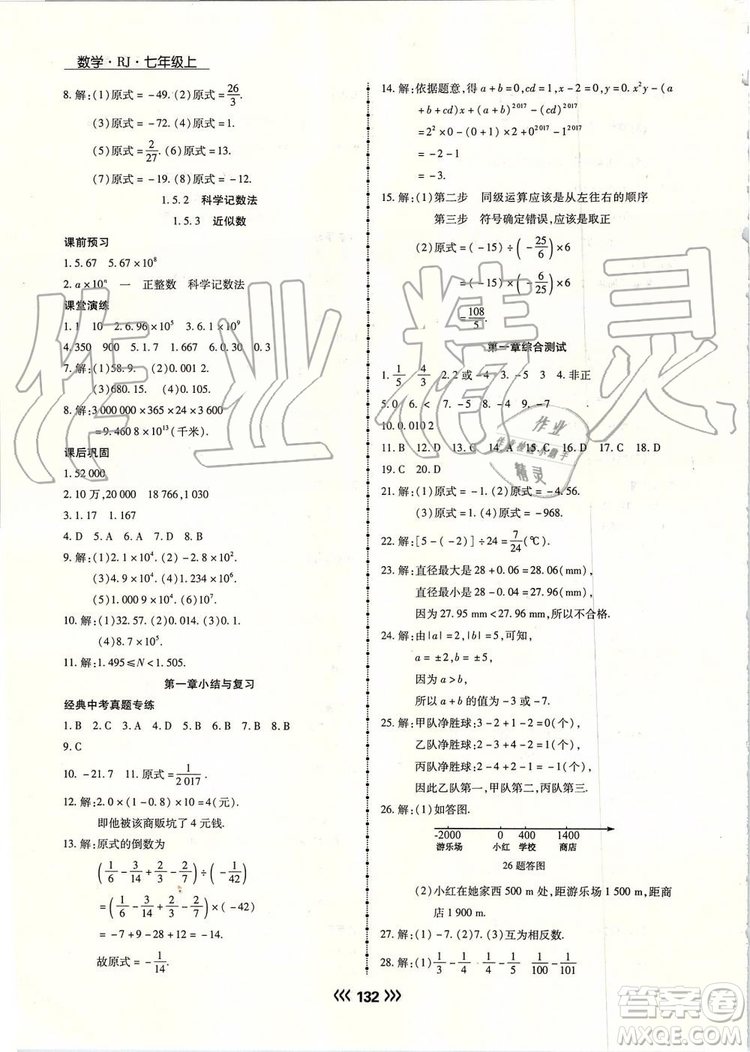 数学·RJ·七年级上
8. 解:(1)原式= -49. (2)原式= 26/3.
(3)原式= -72. (4)原式=1.
(5)原式= 2/27. (6)原式=19.
(7)原式= -19. (8)原式= -12.
1.5.2 科学记数法
1.5.3 近似数
课前预习
1. 5.67 5.67×10⁸
2. a×10ⁿ 一 正整数 科学记数法
课堂演练
1. 1 10 2. 6.96×10⁵ 3. 6.1×10⁵
4. 350 900 5. 1.7 1.667 6. 0.30 0.3
7. 解:(1)0.02. (2)1.5.
(3)680. (4)0.10.
8. 解:3 000 000×365×24×3 600
=9.460 8×10¹³(千米).
课后巩固
1. 52 000
2. 10万,20万 18 766,1 307
3. 1.17 1.167
4. D 5. A 6. A 7. D 8. C
9. 解:(1)2.1×10⁴. (2)-2.5×10⁵.
(3)4.9×10⁴. (4)1.234×10⁶.
(5)1.000 9×10⁷.
10. 解:(1)32.57. (2)0.1. (3)0.1.
(4)8.7×10⁵.
11. 解:1.495≤N<1.505.
第一章小结与复习
经典中考真题专练
1. B 2. C 3. A 4. D 5. A 6. D 7. B 8. B
9. C
10. -21.7 11. 原式= 1/2 017.
12. 解:2.0×(1-0.8)×10=4(元).
即他被该商贩坑了4元钱.
13. 解:原式的倒数为
(1/6 - 3/14 + 2/3 - 2/7)÷(-1/42)
=(1/6 - 3/14 + 2/3 - 2/7)×(-42)
= -7+9-28+12= -14.
故原式= -1/14.
14. 解:依据题意,得a+b=0,cd=1,x-2=0,y=x²-(a
+b+cd)x+(a+b)²⁰¹⁷-(cd)²⁰¹⁷
=2²×0-(0+1)×2+0²⁰¹⁷-1²⁰¹⁷
= -2-1
= -3.
15. 解:(1)第二步 同级运算应该是从左往右的顺序
第三步 符号确定错误,应该是取正
(2)原式=(-15)÷(-25/6)×6
=(-15)×(-6/25)×6
=108/5.
第一章综合测试
1. 1/5 4/3 2. 2或-4 3. -5 3 4. 非正
5. 0 6. < 7. -5 8. -5 9. -7
10. 0.010 2
11. B 12. D 13. C 14. A 15. C 16. C 17. C 18. D
19. C 20. D
21. 解:(1)原式= -1. (2)原式= -4.56.
(3)原式=1. (4)原式= -968.
22. 解:[5-(-2)]÷24= 7/24(℃).
23. 解:直径最大是28+0.06=28.06(mm),
直径最小是28-0.04=27.96(mm),
因为27.95 mm<27.96 mm,所以不合格.
24. 解:由|a|=2,|b|=5,可知,
a=±2,b=±5,
因为a>b,
所以a+b的值为-3或-7.
25. 解:甲队净胜球:3-2+1-2=0(个),
乙队净胜球:2-3+3-1=1(个),
丙队净胜球:2-4+2-1= -1(个),
因此乙队第一,甲队第二,丙队第三.
26. 解:(1)如答图.
-2000 0 400 1400
游乐场 小红 学校 商店
26题答图
(2)小红在她家西500 m处,距游乐场1 500 m,距商
店1 900 m.
27. 解:(1)-7. (2)7. (3)互为相反数.
28. 解:(1) 1/3 - 1/4 1/100 - 1/101
132
作业精灵
作业
精灵
答案圈
MXQE.COM